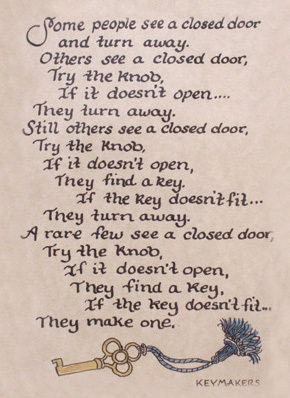 Some people see a closed door
and turn away.
Others see a closed door,
Try the knob,
If it doesn't open....
They turn away.
Still others see a closed door,
Try the knob,
If it doesn't open,
They find a key.
If the key doesn't fit...
They turn away.
A rare few see a closed door,
Try the knob,
If it doesn't open,
They find a key,
If the key doesn't fit...
They make one.
KEYMAKERS